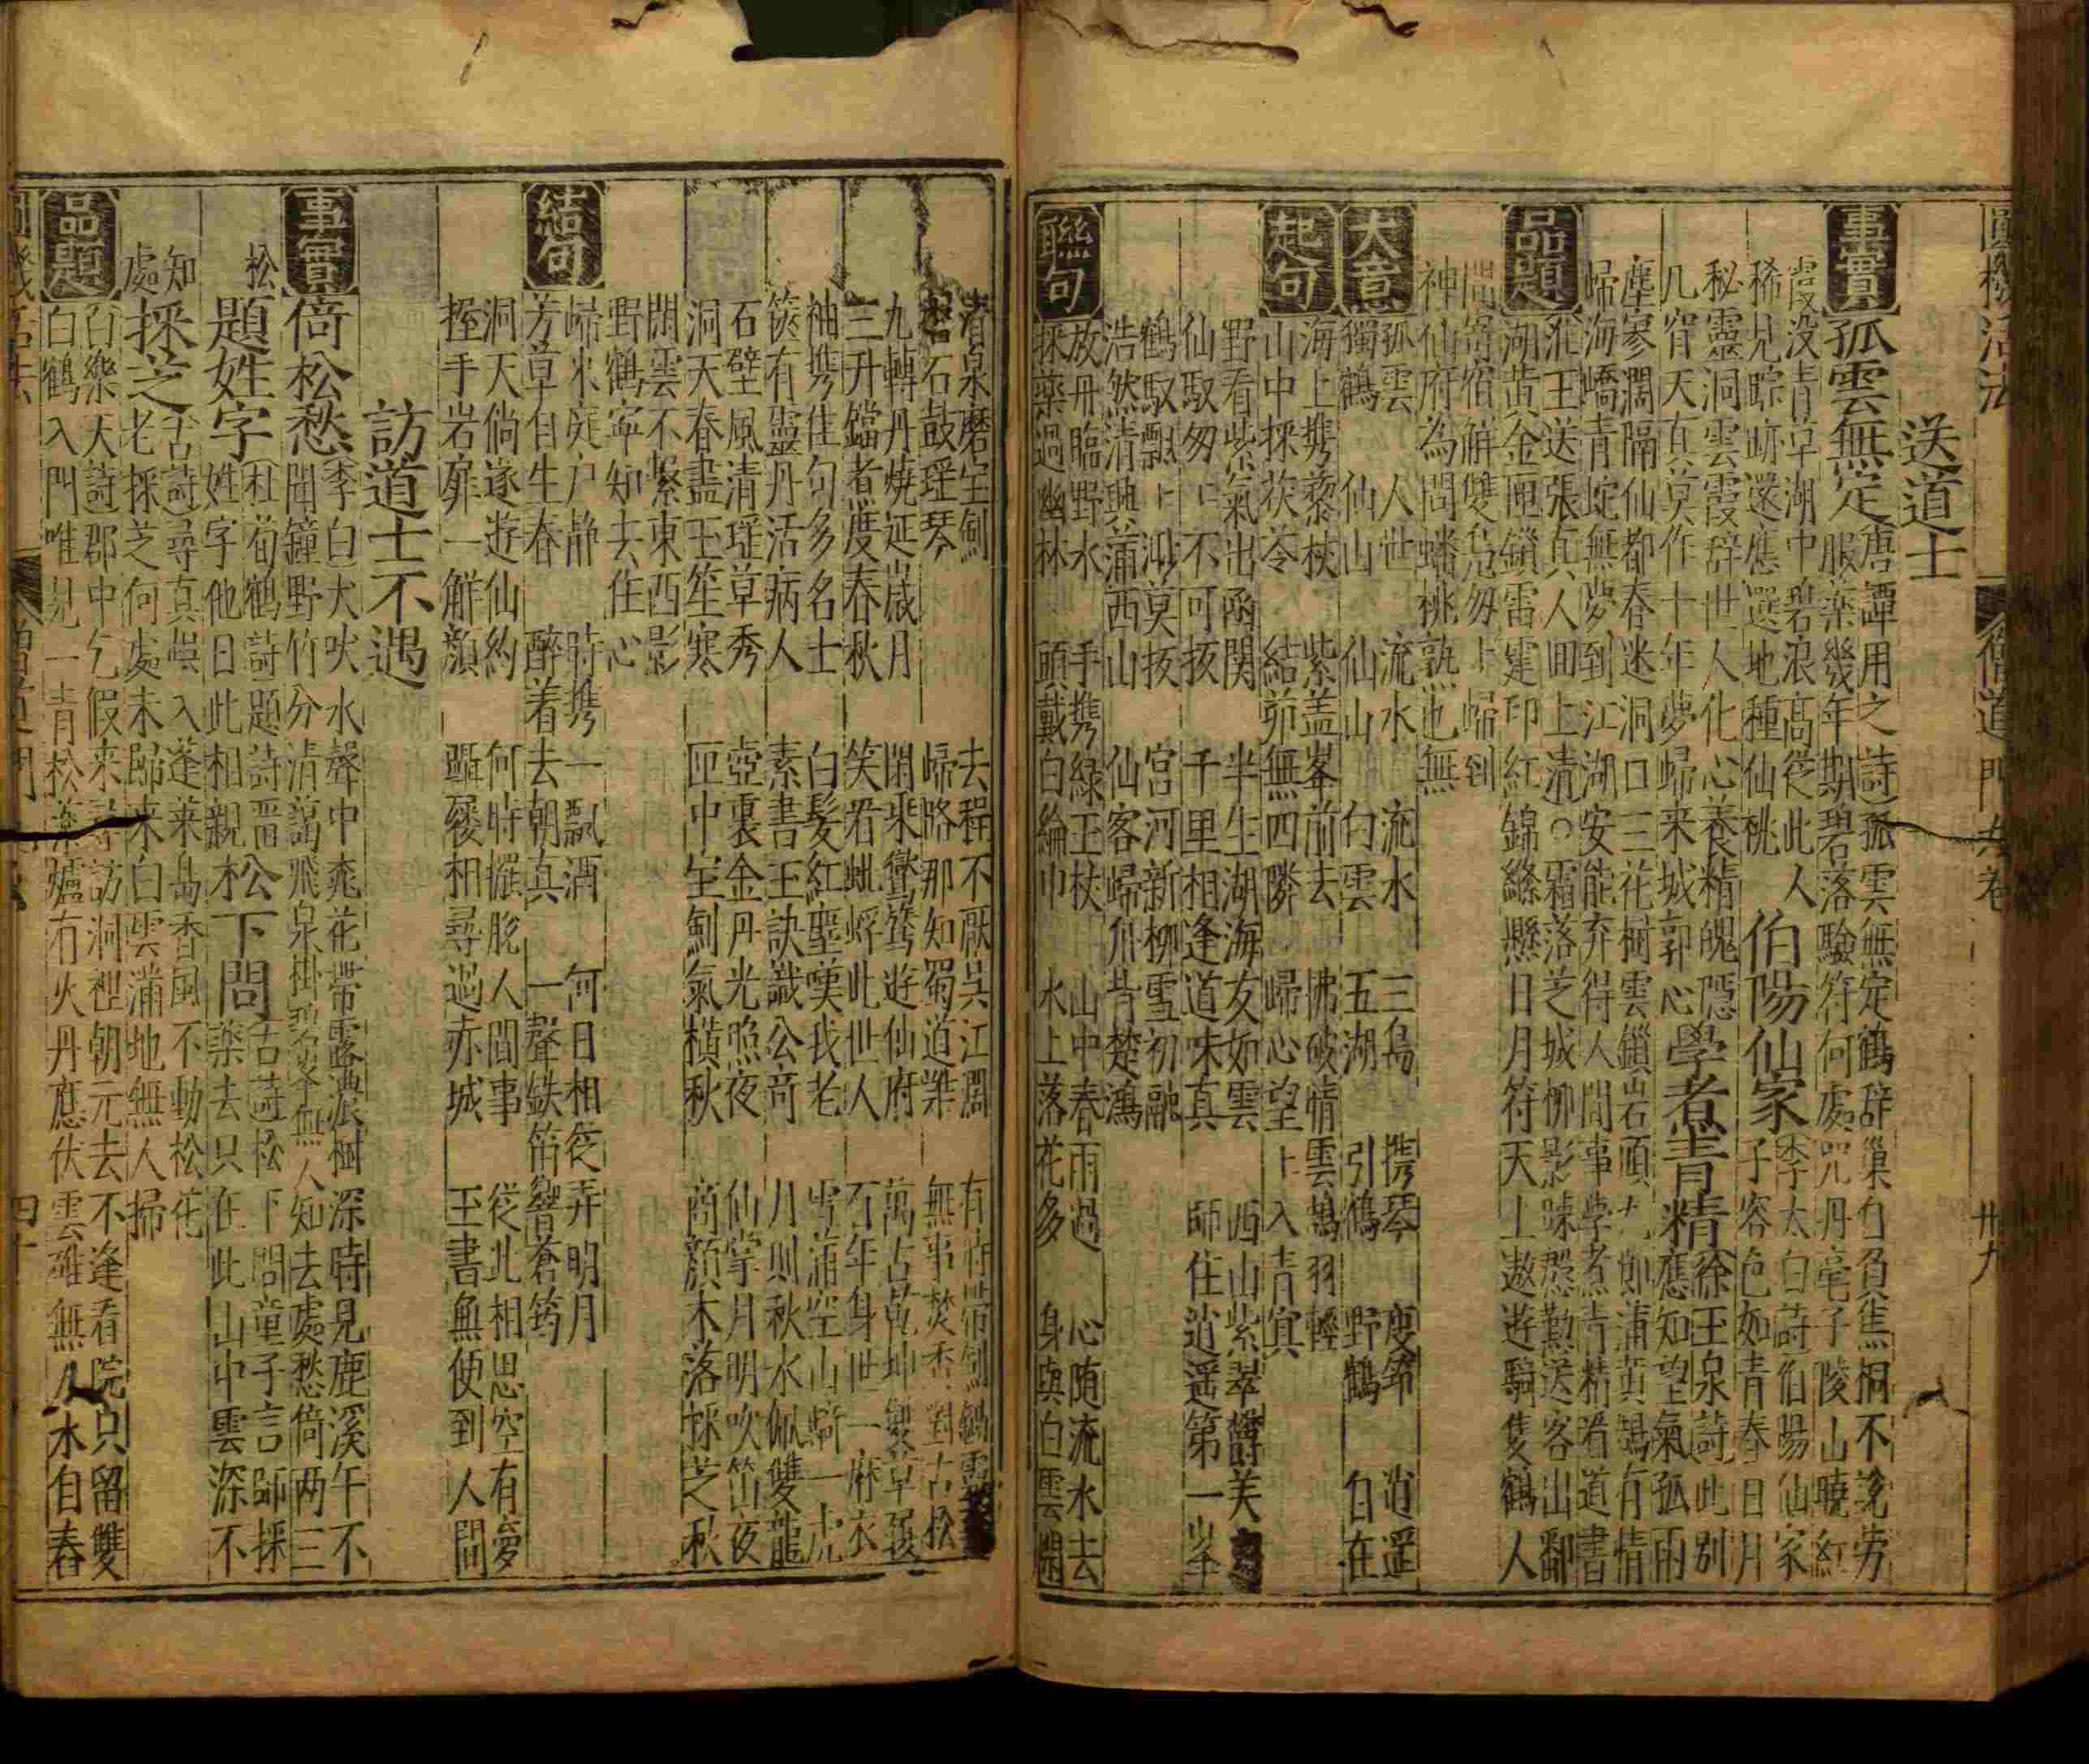 圓機活法 僧道門 六卷 卅九
送道士
事實 孤雲無定 唐譚用之詩孤雲無定鶴辭巢自負焦桐不說勞
服藥幾年期碧落驗符何處咒丹毫子陵山曉紅
霞沒青草湖中碧浪高從此人
稀見踪跡還應選地種仙桃
伯陽仙家 李太白詩伯陽仙家
子容色如青春日月
秘靈洞雲霞辞世人化心養精魄隱
几窅天真莫作十年夢歸来城郭心
學煮青精 徐玉泉詩此别
應知望氣孤雨
塵寥濶隔仙都春迷洞口三花樹雲鎖岩頭九節蒲黄鵠有情
歸海嶠青蛇無夢到江湖安能弃得人間事學煮青精看道書
品題 淮王送張真人回上清○霜落芝城柳影踈慇勤送客出鄱
湖黄金匣鎖雷霆印紅錦絛懸日月符天上遨遊騎隻鶴人
間寄宿觧雙鳬匆匆歸到
神仙府為問蟠桃熟也無
大意 孤雲 人世 流水 流水 三島 携琴 瘦筇 逍遥
獨鶴 仙山 仙山 白雲 五湖 引鶴 野鶴 自在
起句 海上携藜杖 紫盖峯前去 拂破情雲鵠羽輕
山中採茯苓 結茆無四隣 歸心望上入青冥
野看紫氣出函関 半生湖海友如雲 西山紫翠欝美
仙馭匆匆不可扳 千里相逢道味真 師住逍遥第一峯
鶴馭飄上 莫扳 宫河新柳雪初融
浩然清興滿西山 仙客歸舟背楚鴻
聯句 放丹臨野水 手携緑玉杖 山中春雨過 心随流水去
採藥過幽林 頭戴白綸巾 水上落花多 身與白雲閑
渚泉磨宝劍 去程不厭呉江濶
石鼓瑶琴 歸路那知蜀道難 無事焚香對古松
九轉丹燒延歲月 閑乘鸞鶯遊仙府
三升鐺煮度春秋 笑看虮蜉此世人 百年身世一麻衣
袖携佳句多名士 白髪紅塵嘆我老 雪滿空山騎一虎
篋有靈丹活病人 素書玉訣識公奇 月則秋水佩雙龍
石壁風清瑶草秀 壺裏金丹光照夜 仙掌月明吹笛夜
洞天春盡玉笙寒 匣中宝劍氣横秋 商顔木落採芝秋
閒雲不繫東西影
野鶴寧知去住心
結句 歸来庭户静 時携一瓢酒 何日相從弄明月
芳草自生春 醉着去朝真 一聲鉄笛響蒼筠
洞天倘遂遊仙約 何時擺脫人間事 從此相思空有夢
握手岩扉一觧顔 躡屩相尋過赤城 玉書無便到人間
訪道士不遇
事實 倚松愁 李白犬吠水聲中桃花帶露濃樹深時見鹿溪午不
聞鐘野竹分清靄飛泉掛碧峯無人知去處愁倚两三
松
題姓字 杜荀鶴詩題詩畱
姓字他日此相親
松下問 古詩松下問童子言師採
藥去只在此山中雲深不
知
處
採芝 古詩尋真悞入蓬莱島香風不動松花
老採芝何處未歸来白雲滿地無人掃
品題 白樂天詩郡中乞假来尋訪洞裡朝元去不逢看院只留雙
白鶴入門唯見一青松藥爐有火丹應伏雲碓無人水自舂
圓機活法 僧道門 四十